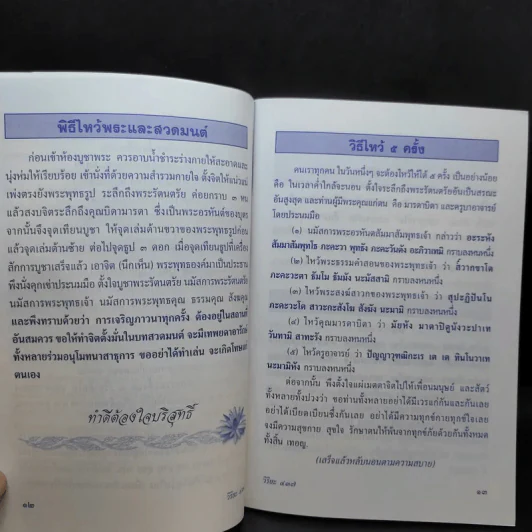 พิธีไหว้พระและสวดมนต์
ก่อนเข้าห้องบูชาพระ ควรอาบน้ำชำระร่างกายให้สะอาดและ
นุ่งห่มให้เรียบร้อย เข้านั่งที่ด้วยความสำรวมกายใจ ตั้งจิตให้แน่วแน่
เพ่งตรงยังพระพุทธรูป ระลึกถึงพระรัตนตรัย ค่อยกราบ ๓ หน
แล้วสงบจิตระลึกถึงคุณบิดามารดา ซึ่งเป็นพระอรหันต์ของบุตร
จากนั้นจึงจุดเทียนบูชา ให้จุดเล่มด้านขวาของพระพุทธรูปก่อน
แล้วจุดเล่มด้านซ้าย ต่อไปจุดธูป ๓ ดอก เมื่อจุดเทียนธูปที่เครื่อง
สักการบูชาเสร็จแล้ว เอาจิต (นึกเห็น) พระพุทธองค์มาเป็นประธาน
พึงนั่งคุกเข่าประนมมือ ตั้งใจบูชาพระรัตนตรัย นมัสการพระรัตนตรัย
นมัสการพระพุทธเจ้า นมัสการพระพุทธคุณ ธรรมคุณ สังฆคุณ
และพึงทราบด้วยว่า การเจริญภาวนาทุกครั้ง ต้องอยู่ในสถานที่
อันสมควร ขอให้ทำจิตตั้งมั่นในบทสวดมนต์ จะมีเทพยดาอารักษ์
ทั้งหลายร่วมอนุโมทนาสาธุการ ขออย่าได้ทำเล่น จะเกิดโทษแก่
ตนเอง
ทำดีต้องใจบริสุทธิ์
๑๒
วิธีไหว้ ๕ ครั้ง
คนเราทุกคน ในวันหนึ่งๆ จะต้องไหว้ให้ได้ ๕ ครั้ง เป็นอย่างน้อย
คือ ในเวลาค่ำใกล้จะนอน ตั้งใจระลึกถึงพระรัตนตรัยอันเป็นสรณะ
อันสูงสุด และท่านผู้มีพระคุณแก่ตน คือ มารดาบิดา และครูบาอาจารย์
โดยประนมมือ
(๑) นมัสการพระอรหันตสัมมาสัมพุทธเจ้า กล่าวว่า อะระหัง
สัมมาสัมพุทโธ ภะคะวา พุทธัง ภะคะวันตัง อะภิวาเทมิ กราบลงหนหนึ่ง
(๒) ไหว้พระธรรมคำสอนของพระพุทธเจ้า ว่า สวากขาโต
ภะคะวะตา ธัมโม ธัมมัง นะมัสสามิ กราบลงหนหนึ่ง
(๓) ไหว้พระสงฆ์สาวกของพระพุทธเจ้า ว่า สุปะฏิปันโน
ภะคะวะโต สาวะกะสังโฆ สังฆัง นะมามิ กราบลงหนหนึ่ง
(๔) ไหว้คุณมารดาบิดา ว่า มัยหัง มาตาปิตูนังวะปาเท
วันทามิ สาทะรัง กราบลงหนหนึ่ง
(๕) ไหว้ครูอาจารย์ ว่า ปัญญาวุฑฒิกะเร เต เต ทินโนวาเท
นะมามิหัง กราบลงหนหนึ่ง
ต่อจากนั้น พึงตั้งใจแผ่เมตตาจิตไปให้เพื่อนมนุษย์ และสัตว์
ทั้งหลายทั้งปวงว่า ขอท่านทั้งหลายอย่าได้มีเวรแก่กันและกันเลย
อย่าได้เบียดเบียนซึ่งกันเลย อย่าได้มีความทุกข์กายทุกข์ใจเลย
จงมีความสุขกาย สุขใจ รักษาตนให้พ้นจากทุกข์ภัยด้วยกันทั้งหมด
ทั้งสิ้น เทอญ.
(เสร็จแล้วหลับนอนตามความสบาย)
วิริยะ ๔๓๗
๑๓